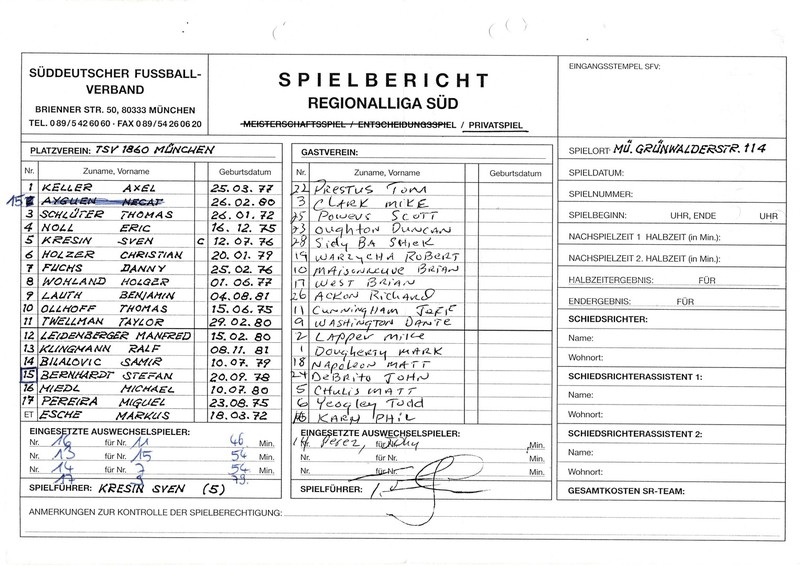 SÜDDEUTSCHER FUSSBALL-
VERBAND
BRIENNER STR. 50, 80333 MÜNCHEN
TEL. 0 89/5 42 60 60 · FAX 0 89/54 26 06 20
SPIELBERICHT
REGIONALLIGA SÜD
MEISTERSCHAFTSSPIEL / ENTSCHEIDUNGSSPIEL / PRIVATSPIEL
EINGANGSSTEMPEL SFV:
PLATZVEREIN: TSV 1860 MÜNCHEN
Nr. Zuname, Vorname Geburtsdatum
1 KELLER AXEL 25.03.77
15 AYGUEN NECAT 26.02.80
3 SCHLÜTER THOMAS 26.01.72
4 NOLL ERIC 16.12.75
5 KRESIN SVEN C 12.07.76
6 HOLZER CHRISTIAN 20.01.79
7 FUCHS DANNY 25.02.76
8 WOHLAND HOLGER 01.06.77
9 LAUTH BENJAMIN 04.08.81
10 OLLHOFF THOMAS 15.06.75
11 TWELLMAN TAYLOR 29.02.80
12 LEIDENBERGER MANFRED 15.02.80
13 KLINGMANN RALF 08.11.81
14 BILALOVIC SAMIR 10.07.79
15 BERNHARDT STEFAN 20.09.78
16 MIEDL MICHAEL 10.07.80
17 PEREIRA MIGUEL 23.08.75
ET ESCHE MARKUS 18.03.72
EINGESETZTE AUSWECHSELSPIELER:
Nr. 16 für Nr. 11 46 Min.
Nr. 13 für Nr. 15 54 Min.
Nr. 14 für Nr. 7 54 Min.
17 79.
SPIELFÜHRER: KRESIN SVEN (5)
GASTVEREIN:
Nr. Zuname, Vorname Geburtsdatum
22 Prestus Tom
3 CLARK MIKE
25 Powers Scott
23 Oughton Duncan
28 Sidy BA Shiek
19 WARZYCHA ROBERT
10 MAisonneuve BRIAN
17 West BRIAN
26 Ackon Richard
11 Cunningham Jeff
9 WASHINGTON DANTE
2 LAPPER Mike
1 Dougherty MARK
18 Napoleon MATT
24 DeBrito JOHN
5 Chulis MATT
6 Yeogley Todd
16 KARN PHIL
EINGESETZTE AUSWECHSELSPIELER:
14 Perez, Min.
Nr. für Nr. Min.
Nr. für Nr. Min.
SPIELFÜHRER:
SPIELORT: MÜ. GRÜNWALDERSTR. 114
SPIELDATUM:
SPIELNUMMER:
SPIELBEGINN: UHR, ENDE UHR
NACHSPIELZEIT 1 HALBZEIT (in Min.):
NACHSPIELZEIT 2. HALBZEIT (in Min.):
HALBZEITERGEBNIS: FÜR
ENDERGEBNIS: FÜR
SCHIEDSRICHTER:
Name:
Wohnort:
SCHIEDSRICHTERASSISTENT 1:
Name:
Wohnort:
SCHIEDSRICHTERASSISTENT 2:
Name:
Wohnort:
GESAMTKOSTEN SR-TEAM:
ANMERKUNGEN ZUR KONTROLLE DER SPIELBERECHTIGUNG: